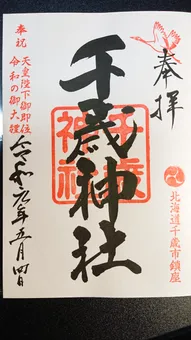 奉拝
北海道千歳市鎮座
千歳神社
千歳神社
奉祝
天皇陛下御即位
令和の御大禮
令和元年五月四日